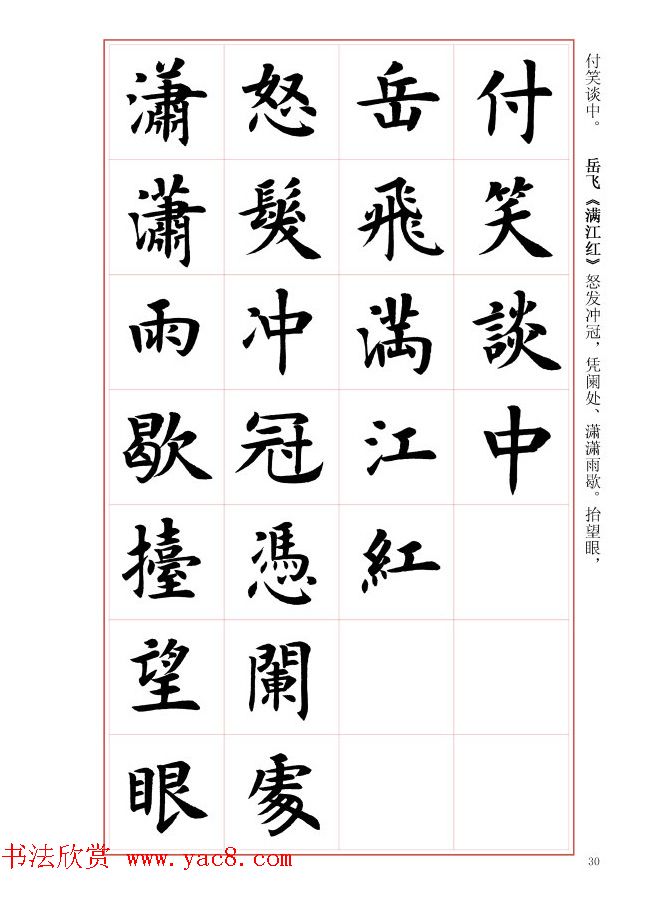 付笑談中
岳飛滿江紅
怒髮冲冠憑闌處
瀟瀟雨歇擡望眼
付笑谈中。 岳飞《满江红》怒发冲冠，凭阑处、潇潇雨歇。抬望眼，
书法欣赏 www.yac8.com
30